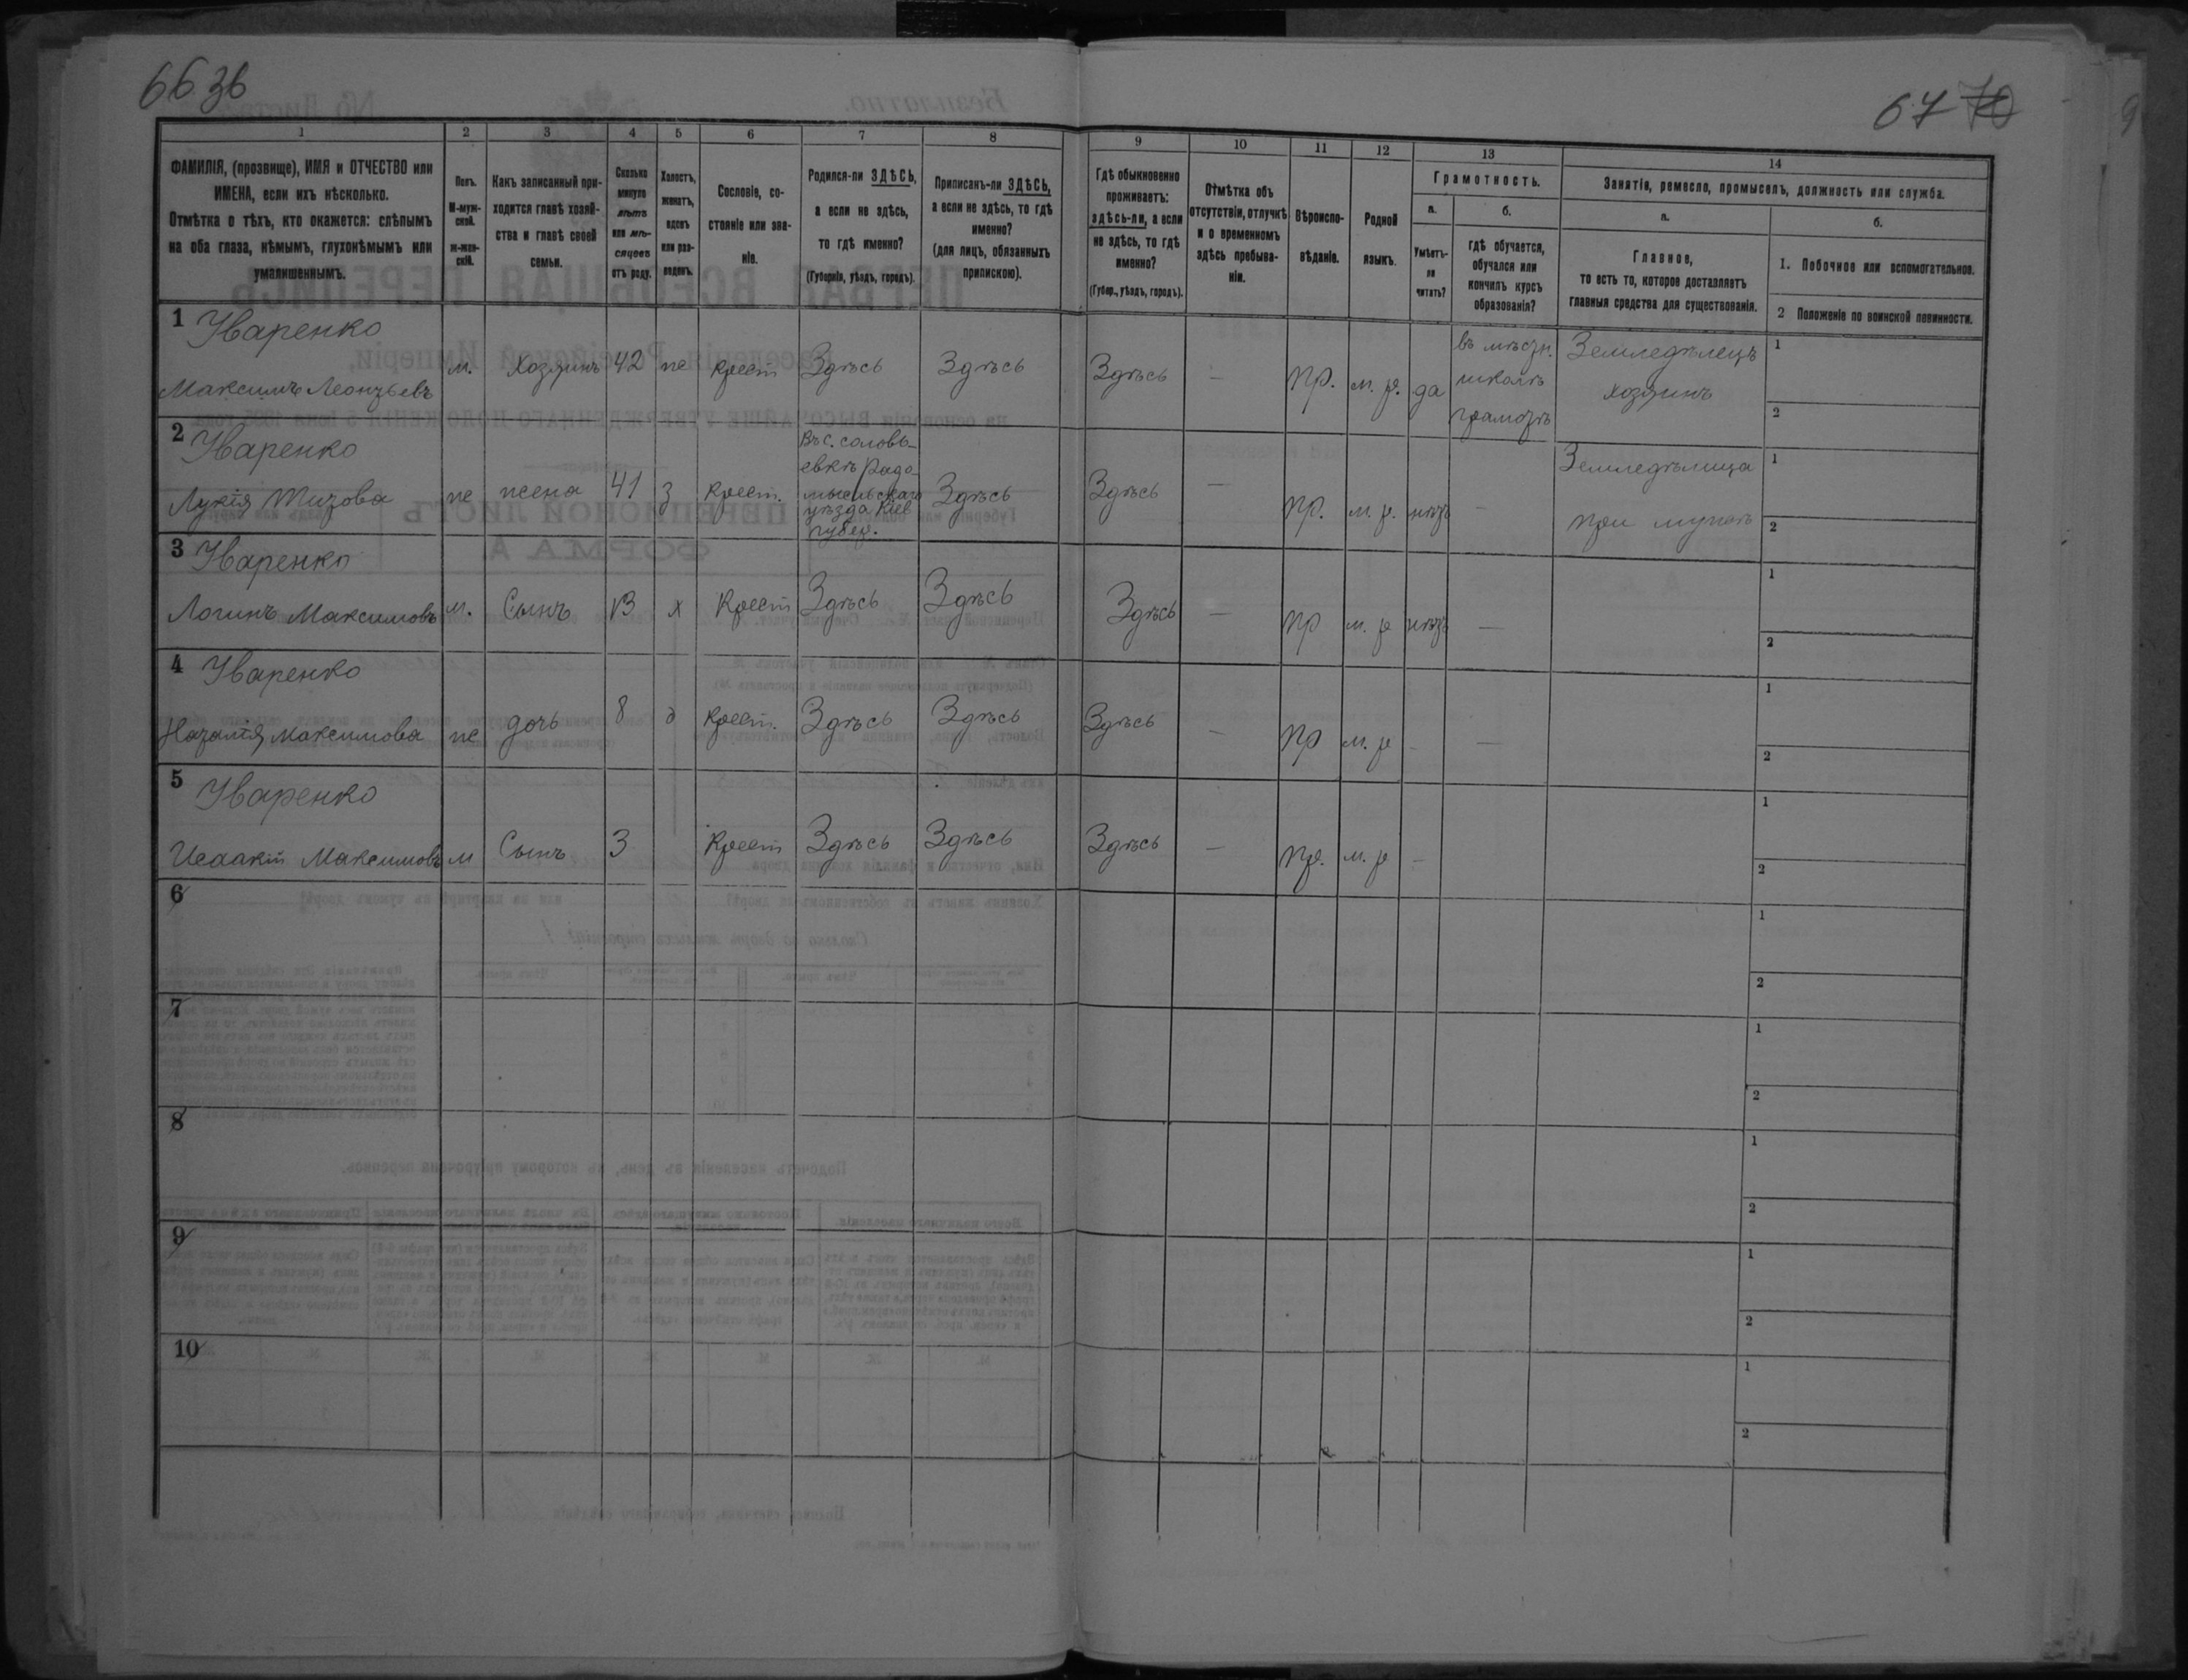 66 зв
67 70
1
2
3
4
5
6
7
8
9
10
11
12
13
14
ФАМИЛІЯ, (прозвище), ИМЯ и ОТЧЕСТВО или
ИМЕНА, если ихъ нѣсколько.
Отмѣтка о тѣхъ, кто окажется: слѣпымъ
на оба глаза, нѣмымъ, глухонѣмымъ или
умалишеннымъ.
Полъ.
М-муж-
ской.
ж-жен-
скій.
Какъ записанный при-
ходится главѣ хозяй-
ства и главѣ своей
семьи.
Сколько
минуло
лѣтъ
или мѣ-
сяцевъ
отъ роду.
Холостъ,
женатъ,
вдовъ
или раз-
веденъ.
Сословіе, со-
стояніе или зва-
ніе.
Родился-ли ЗДѢСЬ,
а если не здѣсь,
то гдѣ именно?
(Губернія, уѣздъ, городъ).
Приписанъ-ли ЗДѢСЬ,
а если не здѣсь, то гдѣ
именно?
(для лицъ, обязанныхъ
припискою).
Гдѣ обыкновенно
проживаетъ:
здѣсь-ли, а если
не здѣсь, то гдѣ
именно?
(Губер., уѣздъ, городъ).
Отмѣтка объ
отсутствіи, отлучкѣ
и о временномъ
здѣсь пребыва-
ніи.
Вѣроиспо-
вѣданіе.
Родной
языкъ.
Грамотность.
а.
Умѣетъ-
ли
читать?
б.
гдѣ обучается,
обучался или
кончилъ курсъ
образованія?
Занятіе, ремесло, промыселъ, должность или служба.
а.
Главное,
то есть то, которое доставляетъ
главныя средства для существованія.
б.
1. Побочное или вспомогательное.
2 Положеніе по воинской повинности.
1 Уваренко
Максимъ Леонтьевъ
м.
Хозяинъ
42
же
Крест
Здѣсь
Здѣсь
Здѣсь
—
пр.
м. р.
да
въ мѣстн.
школѣ
грамотѣ
Земледѣлецъ
хозяинъ
1
2
2 Уваренко
Лукія Титова
же
жена
41
з
Крест.
Въ с. Соловь-
евкѣ Радо-
мысльскаго
уѣзда Кіев
губер.
Здѣсь
Здѣсь
—
пр.
м. р.
нѣтъ
—
Земледѣлица
при мужѣ
1
2
3 Уваренко
Логинъ Максимовъ
м.
Сынъ
13
х
Крест
Здѣсь
Здѣсь
Здѣсь
—
пр
м. р
нѣтъ
—
1
2
4 Уваренко
Наталія Максимова
же
дочь
8
д
Крест.
Здѣсь
Здѣсь
Здѣсь
—
пр
м. р
—
—
1
2
5 Уваренко
Исаакій Максимовъ
м
Сынъ
3
Крест
Здѣсь
Здѣсь
Здѣсь
—
пр.
м. р
—
1
2
6
1
2
7
1
2
8
1
2
9
1
2
10
1
2